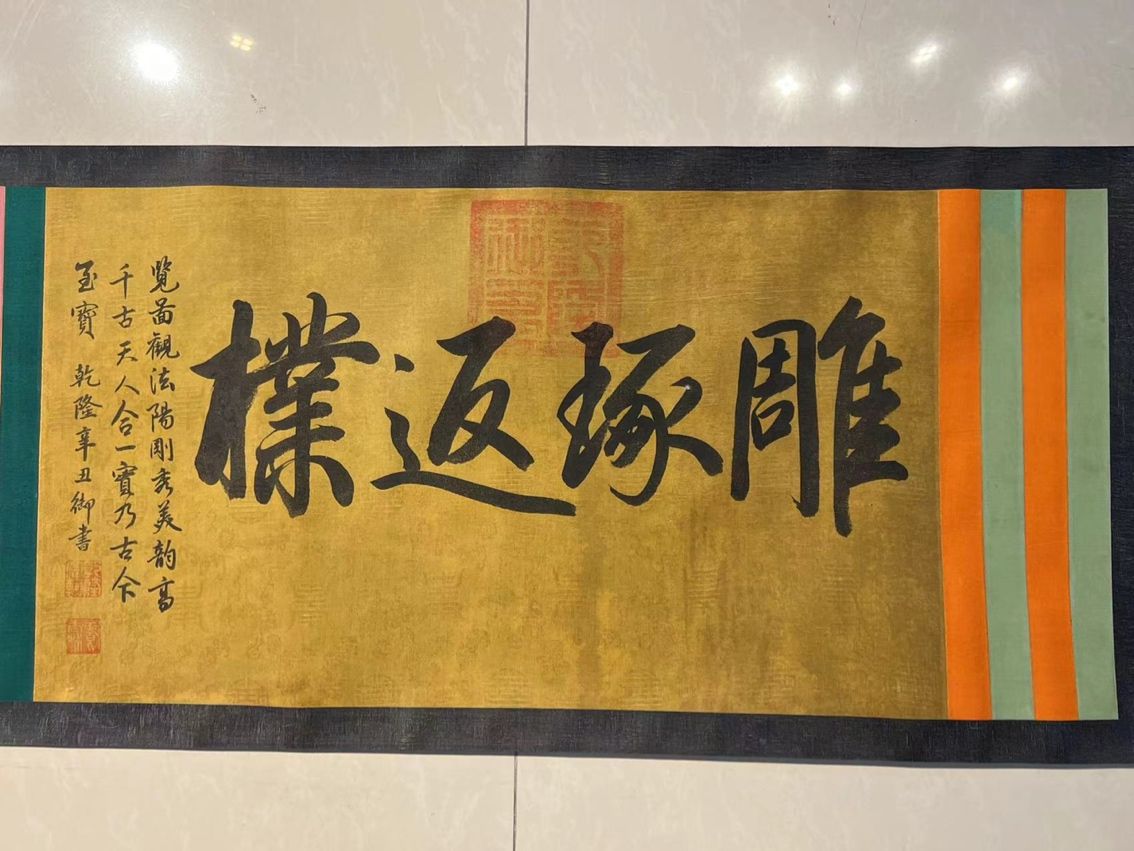 雕琢返樸
覽畫觀法陽剛秀美韵高
千古天人合一寶乃古今
至寶 乾隆辛丑御書